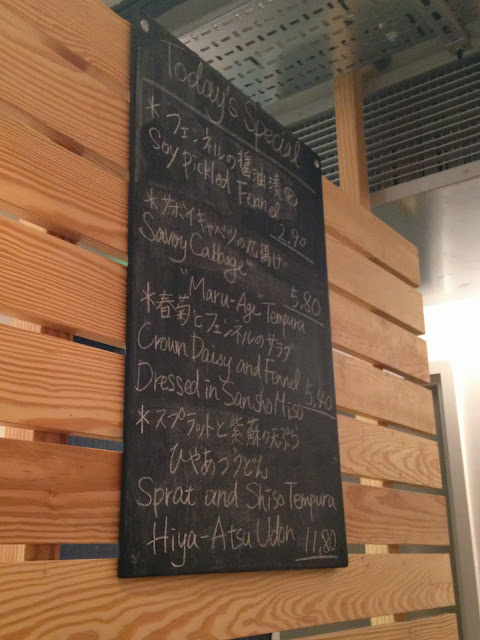 Today's Special
*フェンネルの醤油漬
Soy Pickled Fennel
2.90
*サボイキャベツの丸揚げ
Savoy Cabbage
"Maru-Age" Tempura 5.80
*春菊とフェンネルのサラダ
Crown Daisy and Fennel
Dressed in Sansho Miso 5.40
*スプラットと紫蘇の天ぷら
ひやあつうどん
Sprat and Shiso Tempura
Hiya-Atsu Udon 11.80